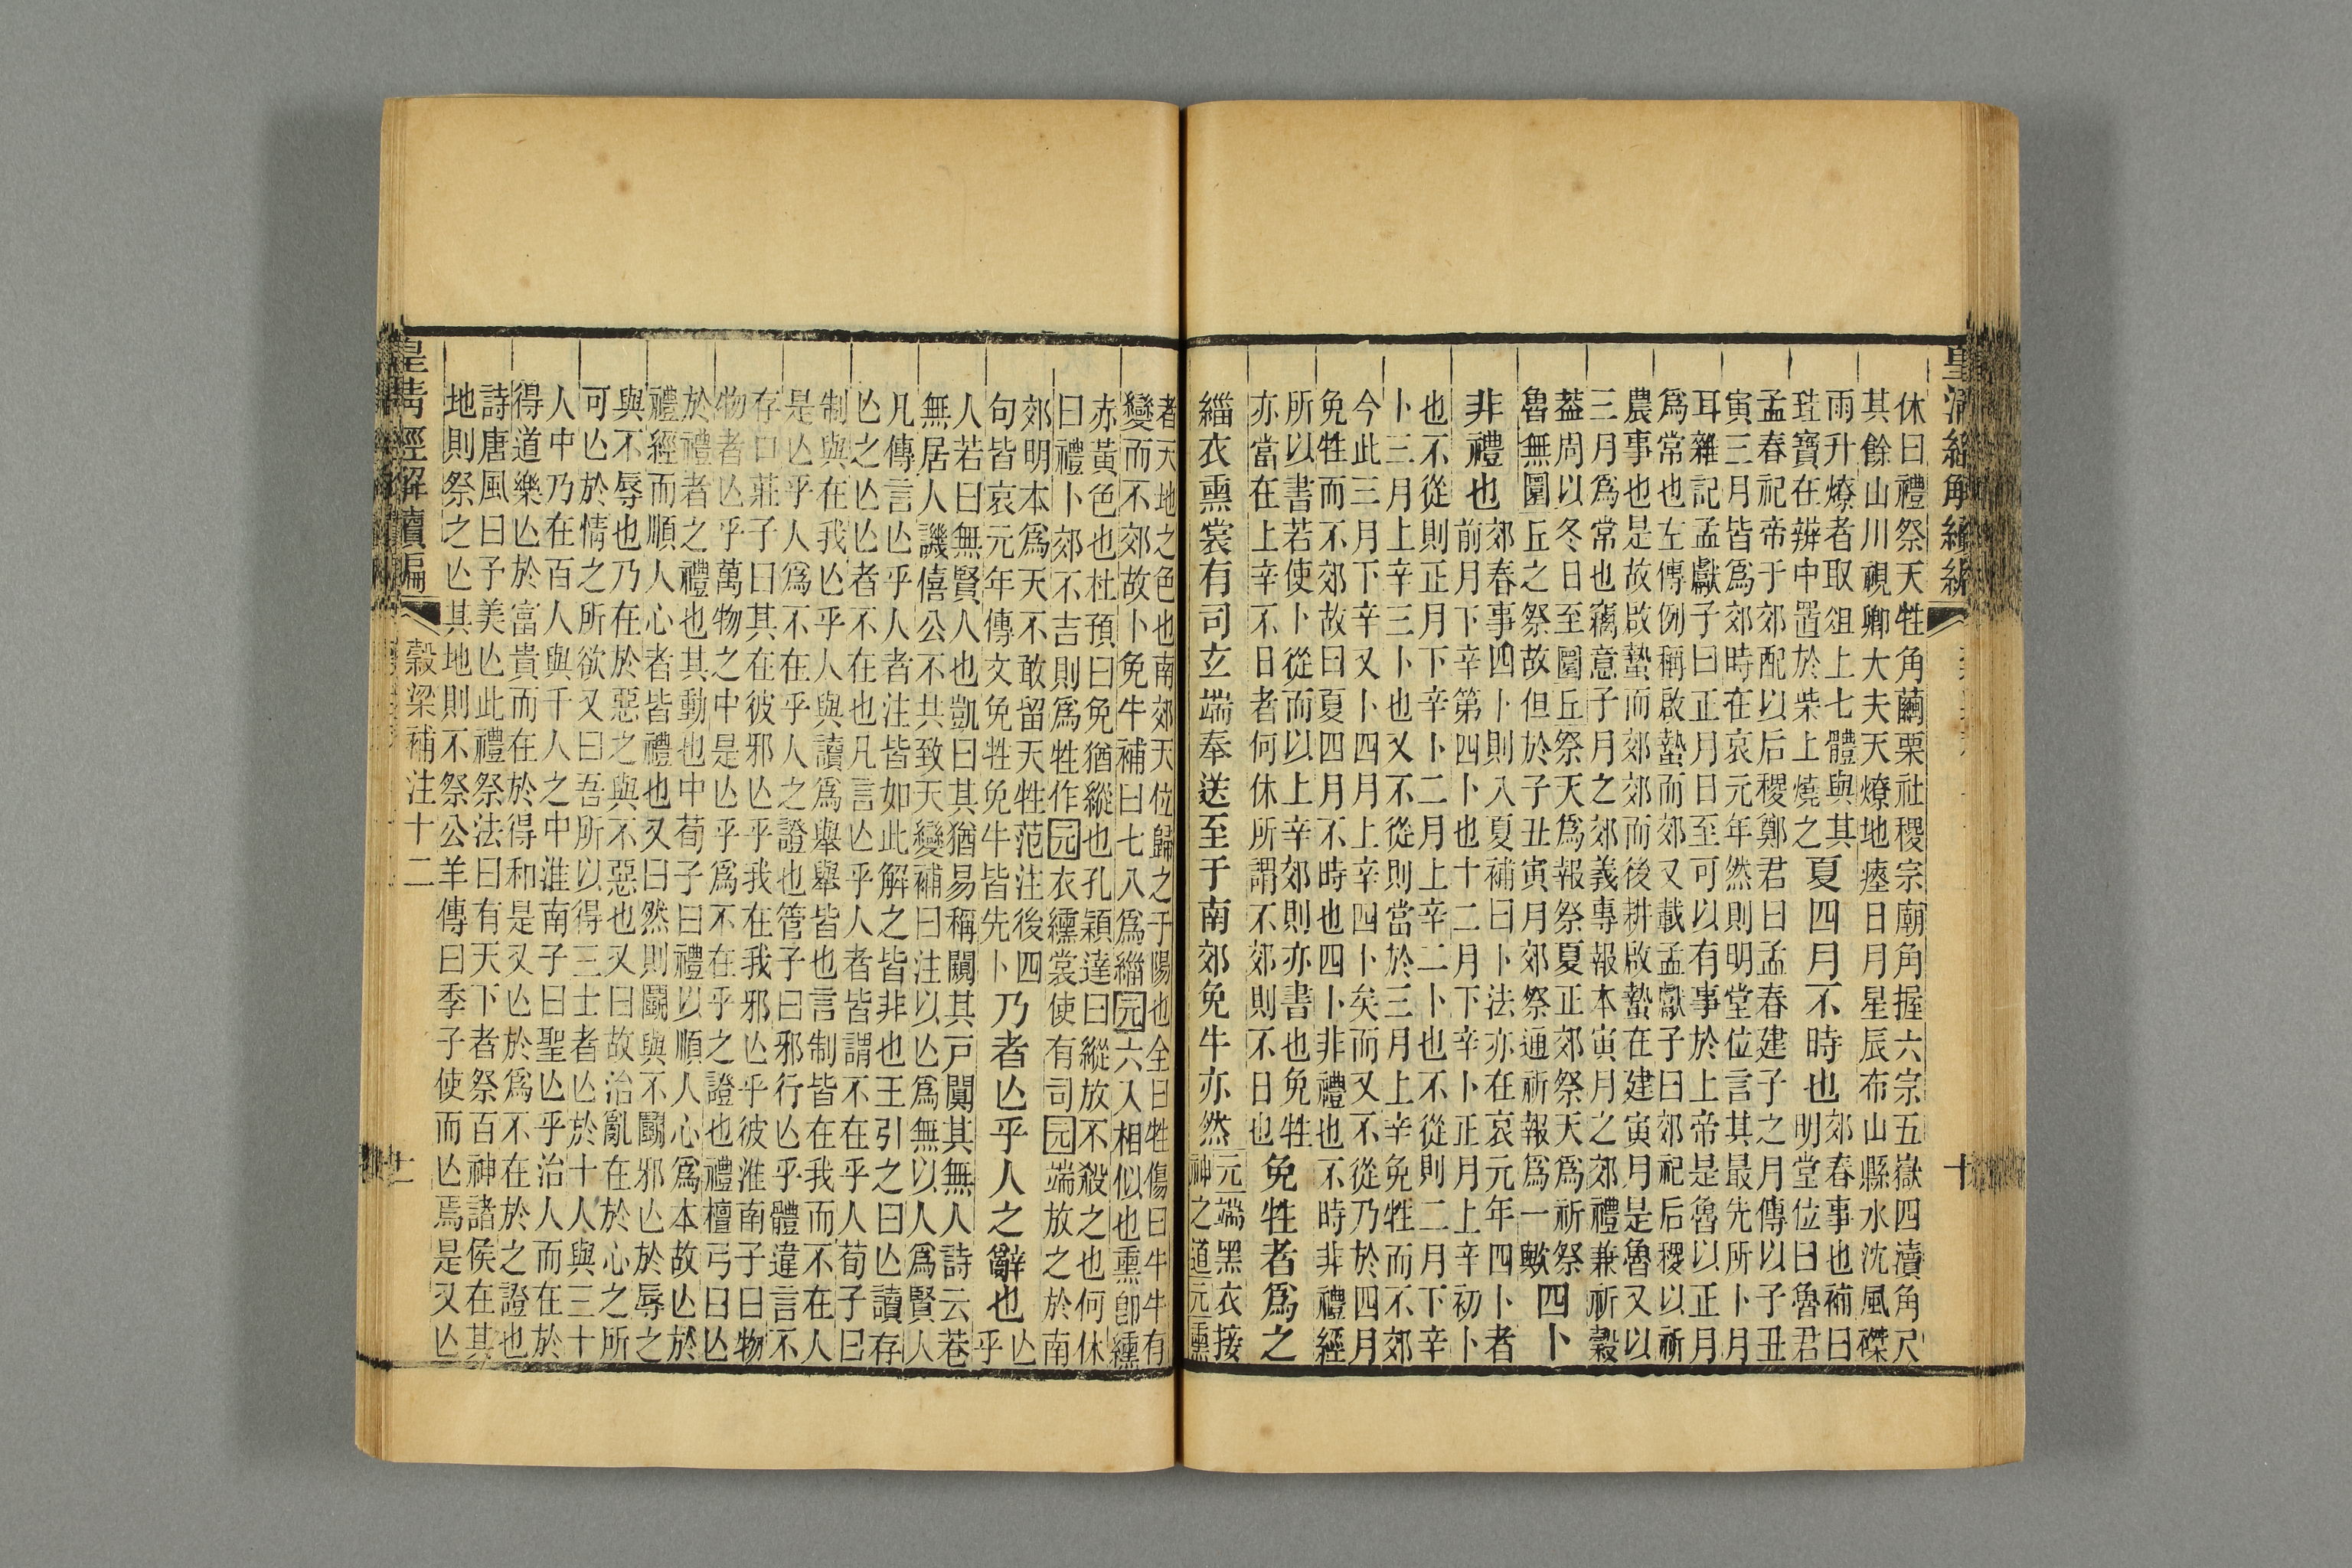 休曰禮祭天牲角繭栗社稷宗廟角握六宗五嶽四瀆角尺
其餘山川視卿大夫天燎地瘞日月星辰布山縣水沈風磔
雨升燎者取俎上七體與其
珪寶在辨中置於柴上燒之
夏四月不時也
郊春事也補曰
明堂位曰魯君
孟春祀帝于郊配以后稷鄭君曰孟春建子之月傳以子丑
寅三月皆為郊時在哀元年然則明堂位言其最先所卜月
耳雜記孟獻子曰正月日至可以有事於上帝是魯以正月
為常也左傳例稱啟蟄而郊又載孟獻子曰郊祀后稷以祈
農事也是故啟蟄而郊郊而後耕啟蟄在建寅月是魯又以
三月為常也竊意子月之郊義專報本寅月之郊禮兼祈穀
蓋周以冬日至圜丘祭天為報祭夏正郊祭天為祈祭
魯無圜丘之祭故但於子丑寅月郊祭通祈報為一歟
四卜
非禮也
郊春事四卜則入夏補曰卜法亦在哀元年四卜者
前月下辛第四卜也十二月下辛卜正月上辛初卜
也不從則正月下辛卜二月上辛二卜也不從則二月下辛
卜三月上辛三卜也又不從則當於三月上辛免牲而不郊
今此三月下辛又卜四月上辛四卜矣而又不從乃於四月
免牲而不郊故曰夏四月不時也四卜非禮也不時非禮經
所以書若使卜從而以上辛郊則亦書也免牲
亦當在上辛不日者何休所謂不郊則不日也
免牲者為之
緇衣熏裳有司玄端奉送至于南郊免牛亦然
元端黑衣接
神之道元纁
者天地之色也南郊天位歸之于陽也全曰牲傷曰牛牛有
變而不郊故卜免牛補曰七入為緇元六入相似也熏卽纁
赤黃色也杜預曰免猶縱也孔穎達曰縱放不殺之也何休
曰禮卜郊不吉則為牲作元衣纁裳使有司元端放之於南
郊明本為天不敢留天牲范注後四
句皆哀元年傳文免牲免牛皆先卜
乃者亾乎人之辭也
亾
乎
人若曰無賢人也凱曰其猶易稱闚其戸闃其無人詩云巷
無居人譏僖公不共致天變補曰注以亾為無以人為賢人
凡傳言亾乎人者注皆如此解之皆非也王引之曰亾讀存
亾之亾亾者不在也凡言亾乎人者皆謂不在乎人荀子曰
制與在我亾乎人與讀為舉舉皆也言制皆在我而不在人
是亾乎人為不在乎人之證也管子曰邪行亾乎體違言不
存口莊子曰其在彼邪亾乎我在我邪亾乎彼淮南子曰物
物者亾乎萬物之中是亾乎為不在乎之證也禮檀弓曰亾
於禮者之禮也其動也中荀子曰禮以順人心為本故亾於
禮經而順人心者皆禮也又曰然則鬭與不鬭邪亾於辱之
與不辱也乃在於惡之與不惡也又曰故治亂在於心之所
可亾於情之所欲又曰吾所以得三士者亾於十人與三十
人中乃在百人與千人之中淮南子曰聖亾乎治人而在於
得道樂亾於富貴而在於得和是又亾於為不在於之證也
詩唐風曰予美亾此禮祭法曰有天下者祭百神諸侯在其
地則祭之亾其地則不祭公羊傳曰季子使而亾焉是又亾
皇清經解續編
穀梁補注十二